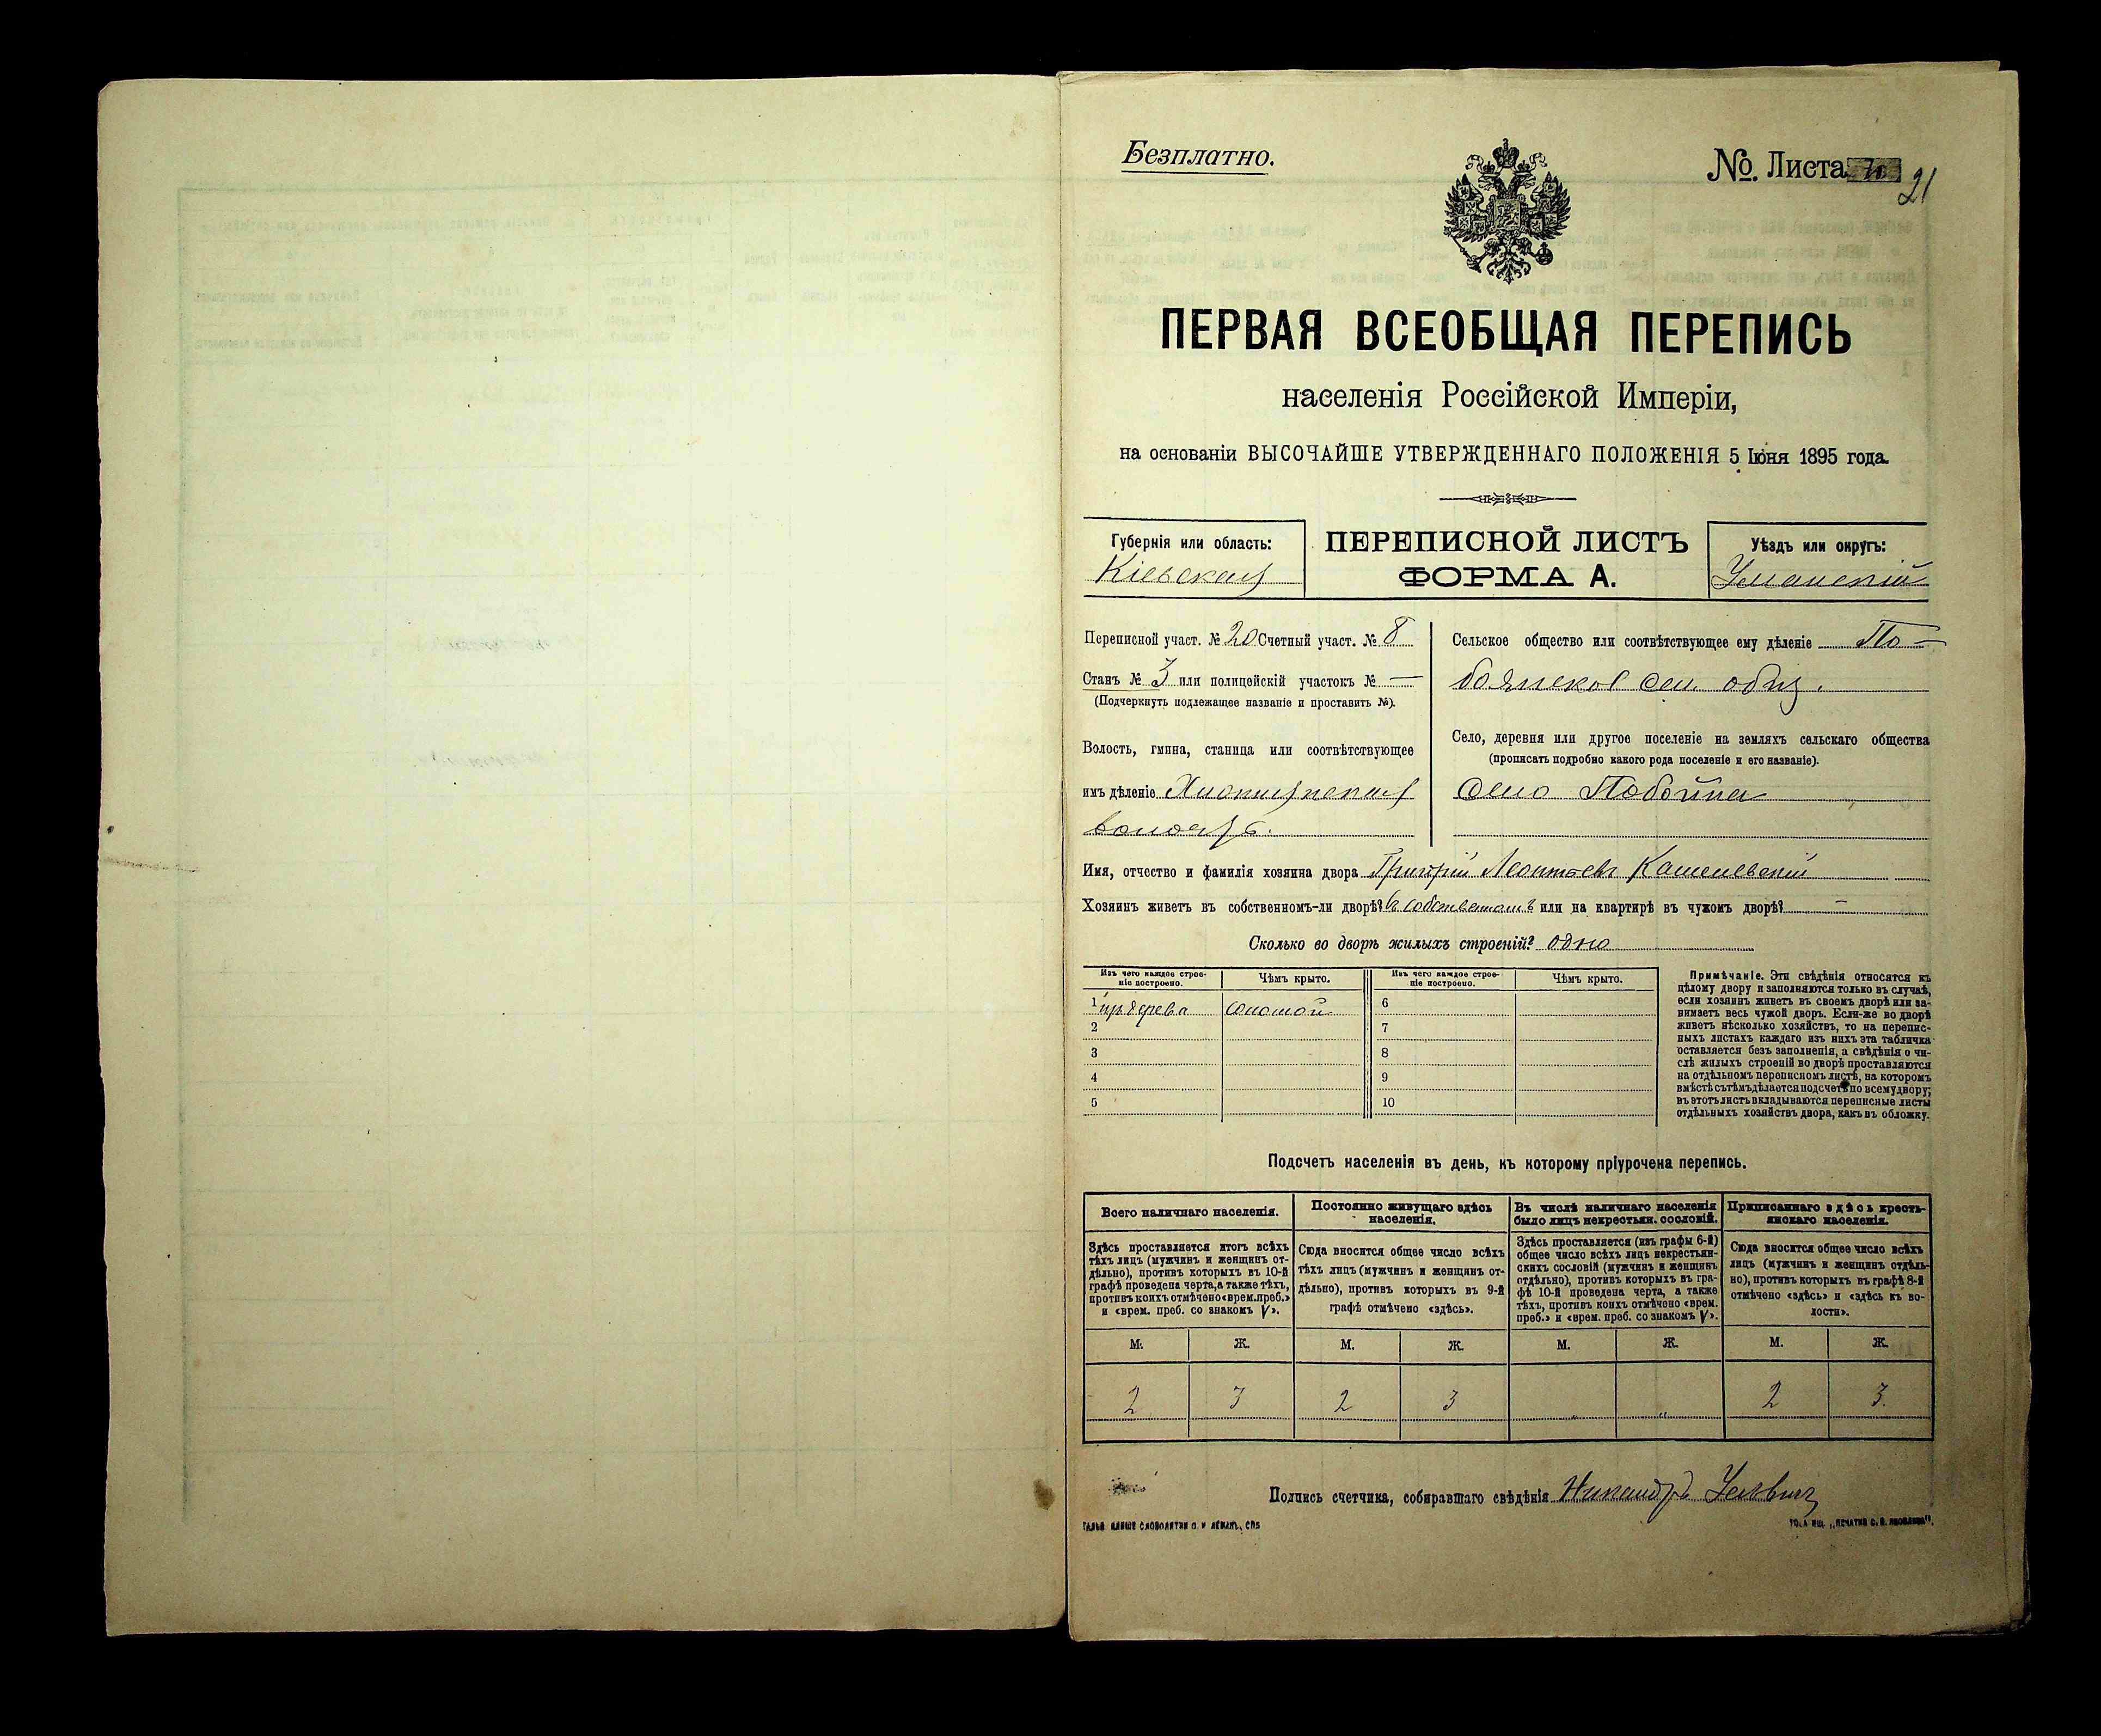 Безплатно.
№ Листа 21
ПЕРВАЯ ВСЕОБЩАЯ ПЕРЕПИСЬ
населенія Россійской Имперіи,
на основаніи ВЫСОЧАЙШЕ УТВЕРЖДЕННАГО ПОЛОЖЕНІЯ 5 Іюня 1895 года.
Губернія или область:
Кіевская
ПЕРЕПИСНОЙ ЛИСТЪ
ФОРМА А.
Уѣздъ или округъ:
Уманскій
Переписной участ. № 20 Счетный участ. № 8
Станъ № 3 или полицейскій участокъ № —
(Подчеркнуть подлежащее названіе и проставить №).
Волость, гмина, станица или соотвѣтствующее
имъ дѣленіе
волость.
Сельское общество или соотвѣтствующее ему дѣленіе По-
боянское сел. общ.
Село, деревня или другое поселеніе на земляхъ сельскаго общества
(прописать подробно какого рода поселеніе и его названіе).
село Побойна
Имя, отчество и фамилія хозяина двора Григорій Леонтьевъ
Хозяинъ живетъ въ собственномъ-ли дворѣ? въ собственномъ или на квартирѣ въ чужомъ дворѣ? —
Сколько во дворѣ жилыхъ строеній? одно
Изъ чего каждое строе-
ніе построено.
Чѣмъ крыто.
Изъ чего каждое строе-
ніе построено.
Чѣмъ крыто.
1 изъ дерева соломой
2
3
4
5
6
7
8
9
10
Примѣчаніе. Эти свѣдѣнія относятся къ
цѣлому двору и заполняются только въ случаѣ,
если хозяинъ живетъ въ своемъ дворѣ или за-
нимаетъ весь чужой дворъ. Если-же во дворѣ
живетъ нѣсколько хозяйствъ, то на перепис-
ныхъ листахъ каждаго изъ нихъ эта табличка
оставляется безъ заполненія, а свѣдѣнія о чи-
слѣ жилыхъ строеній во дворѣ проставляются
на отдѣльномъ переписномъ листѣ, на которомъ
вмѣстѣ съ тѣмъ дѣлается подсчетъ по всему двору;
въ этотъ листъ вкладываются переписные листы
отдѣльныхъ хозяйствъ двора, какъ въ обложку.
Подсчетъ населенія въ день, къ которому пріурочена перепись.
Всего наличнаго населенія.
Здѣсь проставляется итогъ всѣхъ
тѣхъ лицъ (мужчинъ и женщинъ от-
дѣльно), противъ которыхъ въ 10-й
графѣ проведена черта, а также тѣхъ,
противъ коихъ отмѣчено «врем. преб.»
и «врем. преб. со знакомъ V».
Постоянно живущаго здѣсь
населенія.
Сюда вносится общее число всѣхъ
тѣхъ лицъ (мужчинъ и женщинъ от-
дѣльно), противъ которыхъ въ 9-й
графѣ отмѣчено «здѣсь».
Въ числѣ наличнаго населенія
было лицъ некрестьян. сословій.
Здѣсь проставляется (изъ графы 6-й)
общее число всѣхъ лицъ некрестьян-
скихъ сословій (мужчинъ и женщинъ
отдѣльно), противъ которыхъ въ гра-
фѣ 10-й проведена черта, а также
тѣхъ, противъ коихъ отмѣчено «врем.
преб.» и «врем. преб. со знакомъ V».
Приписаннаго здѣсь кресть-
янскаго населенія.
Сюда вносится общее число всѣхъ
лицъ (мужчинъ и женщинъ отдѣль-
но), противъ которыхъ въ графѣ 8-й
отмѣчено «здѣсь» и «здѣсь къ во-
лости».
М. Ж. М. Ж. М. Ж. М. Ж.
2 3 2 3 „ „ 2 3.
Подпись счетчика, собиравшаго свѣдѣнія Никандръ